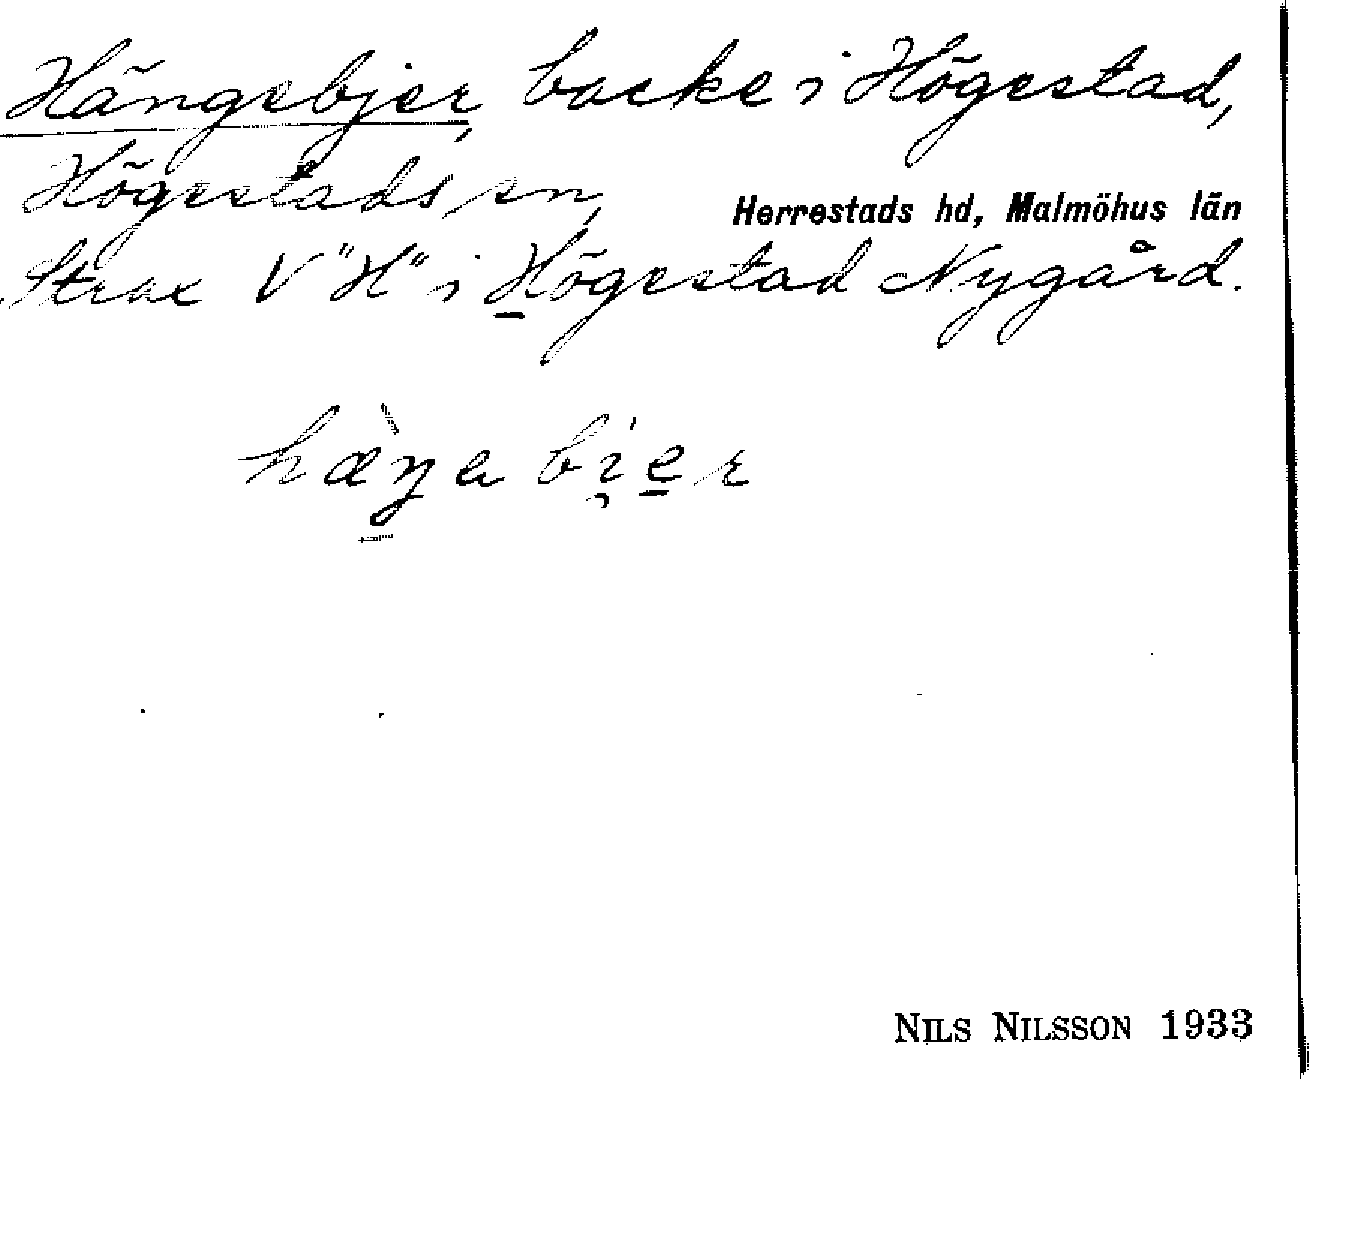 Hängebjer, backe i Högestad,
Högestads sn, Herrestads hd, Malmöhus län
Strax V "H" i Högestad Nygård.
NILS NILSSON 1933